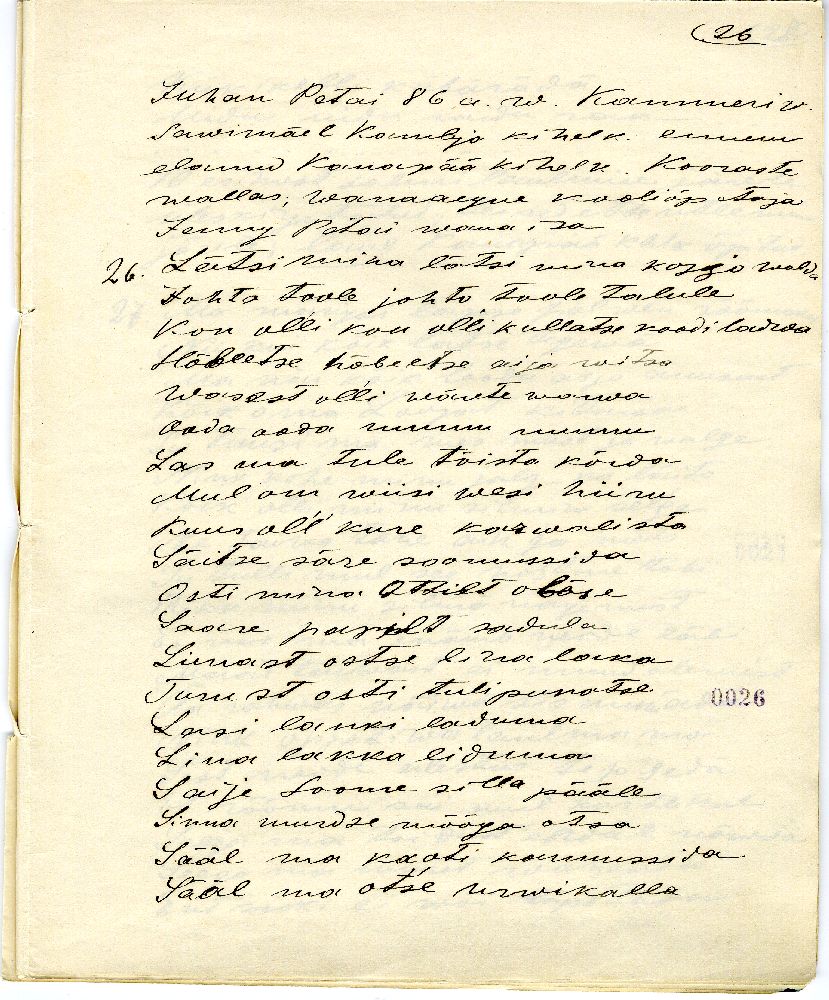 26
Juhan Petai 86 a. w. Kammeri w.
Sawimäel Kambja kihelk. ennem
elanud Kanapää kihelk. Kooraste
wallas, wanaaegne kooliõpetaja
Jenny Petai wanaisa
26. Lätsi mina lätsi mina kosjo
Johto toole johto toole talule
Kon olli kon olli kullatse
Hõbeetse hõbeetse aija witsa
Wasest olli wäräte wawa
Ooda ooda
Las ma tule tõista kõrda
Mul om wiisi wesi hiiru
Kuus oll' kure karwalista
Säitse säre soomussida
Osti mina Ottilt obäse
Saare papilt sadula
Linast ostse lina laka
Turust osti tulipunatse
Lasi lauki laduma
Lina lakka liduma
Saije Soome silla pääle
Sinna murdse mõõga otsa
0026
Sääl ma kaoti kannussida
Sääl ma otse urwikalla